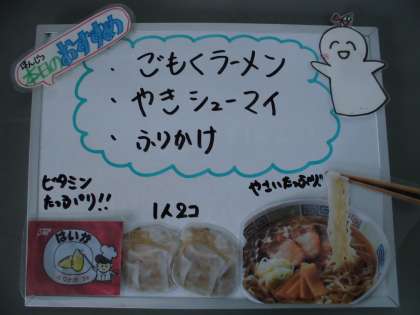 ほんじつ
本日のおすすめ
・ごもくラーメン
・やきシューマイ
・ふりかけ
ビタミン
たっぷり!!
1人2コ
やさいたっぷり
はいが